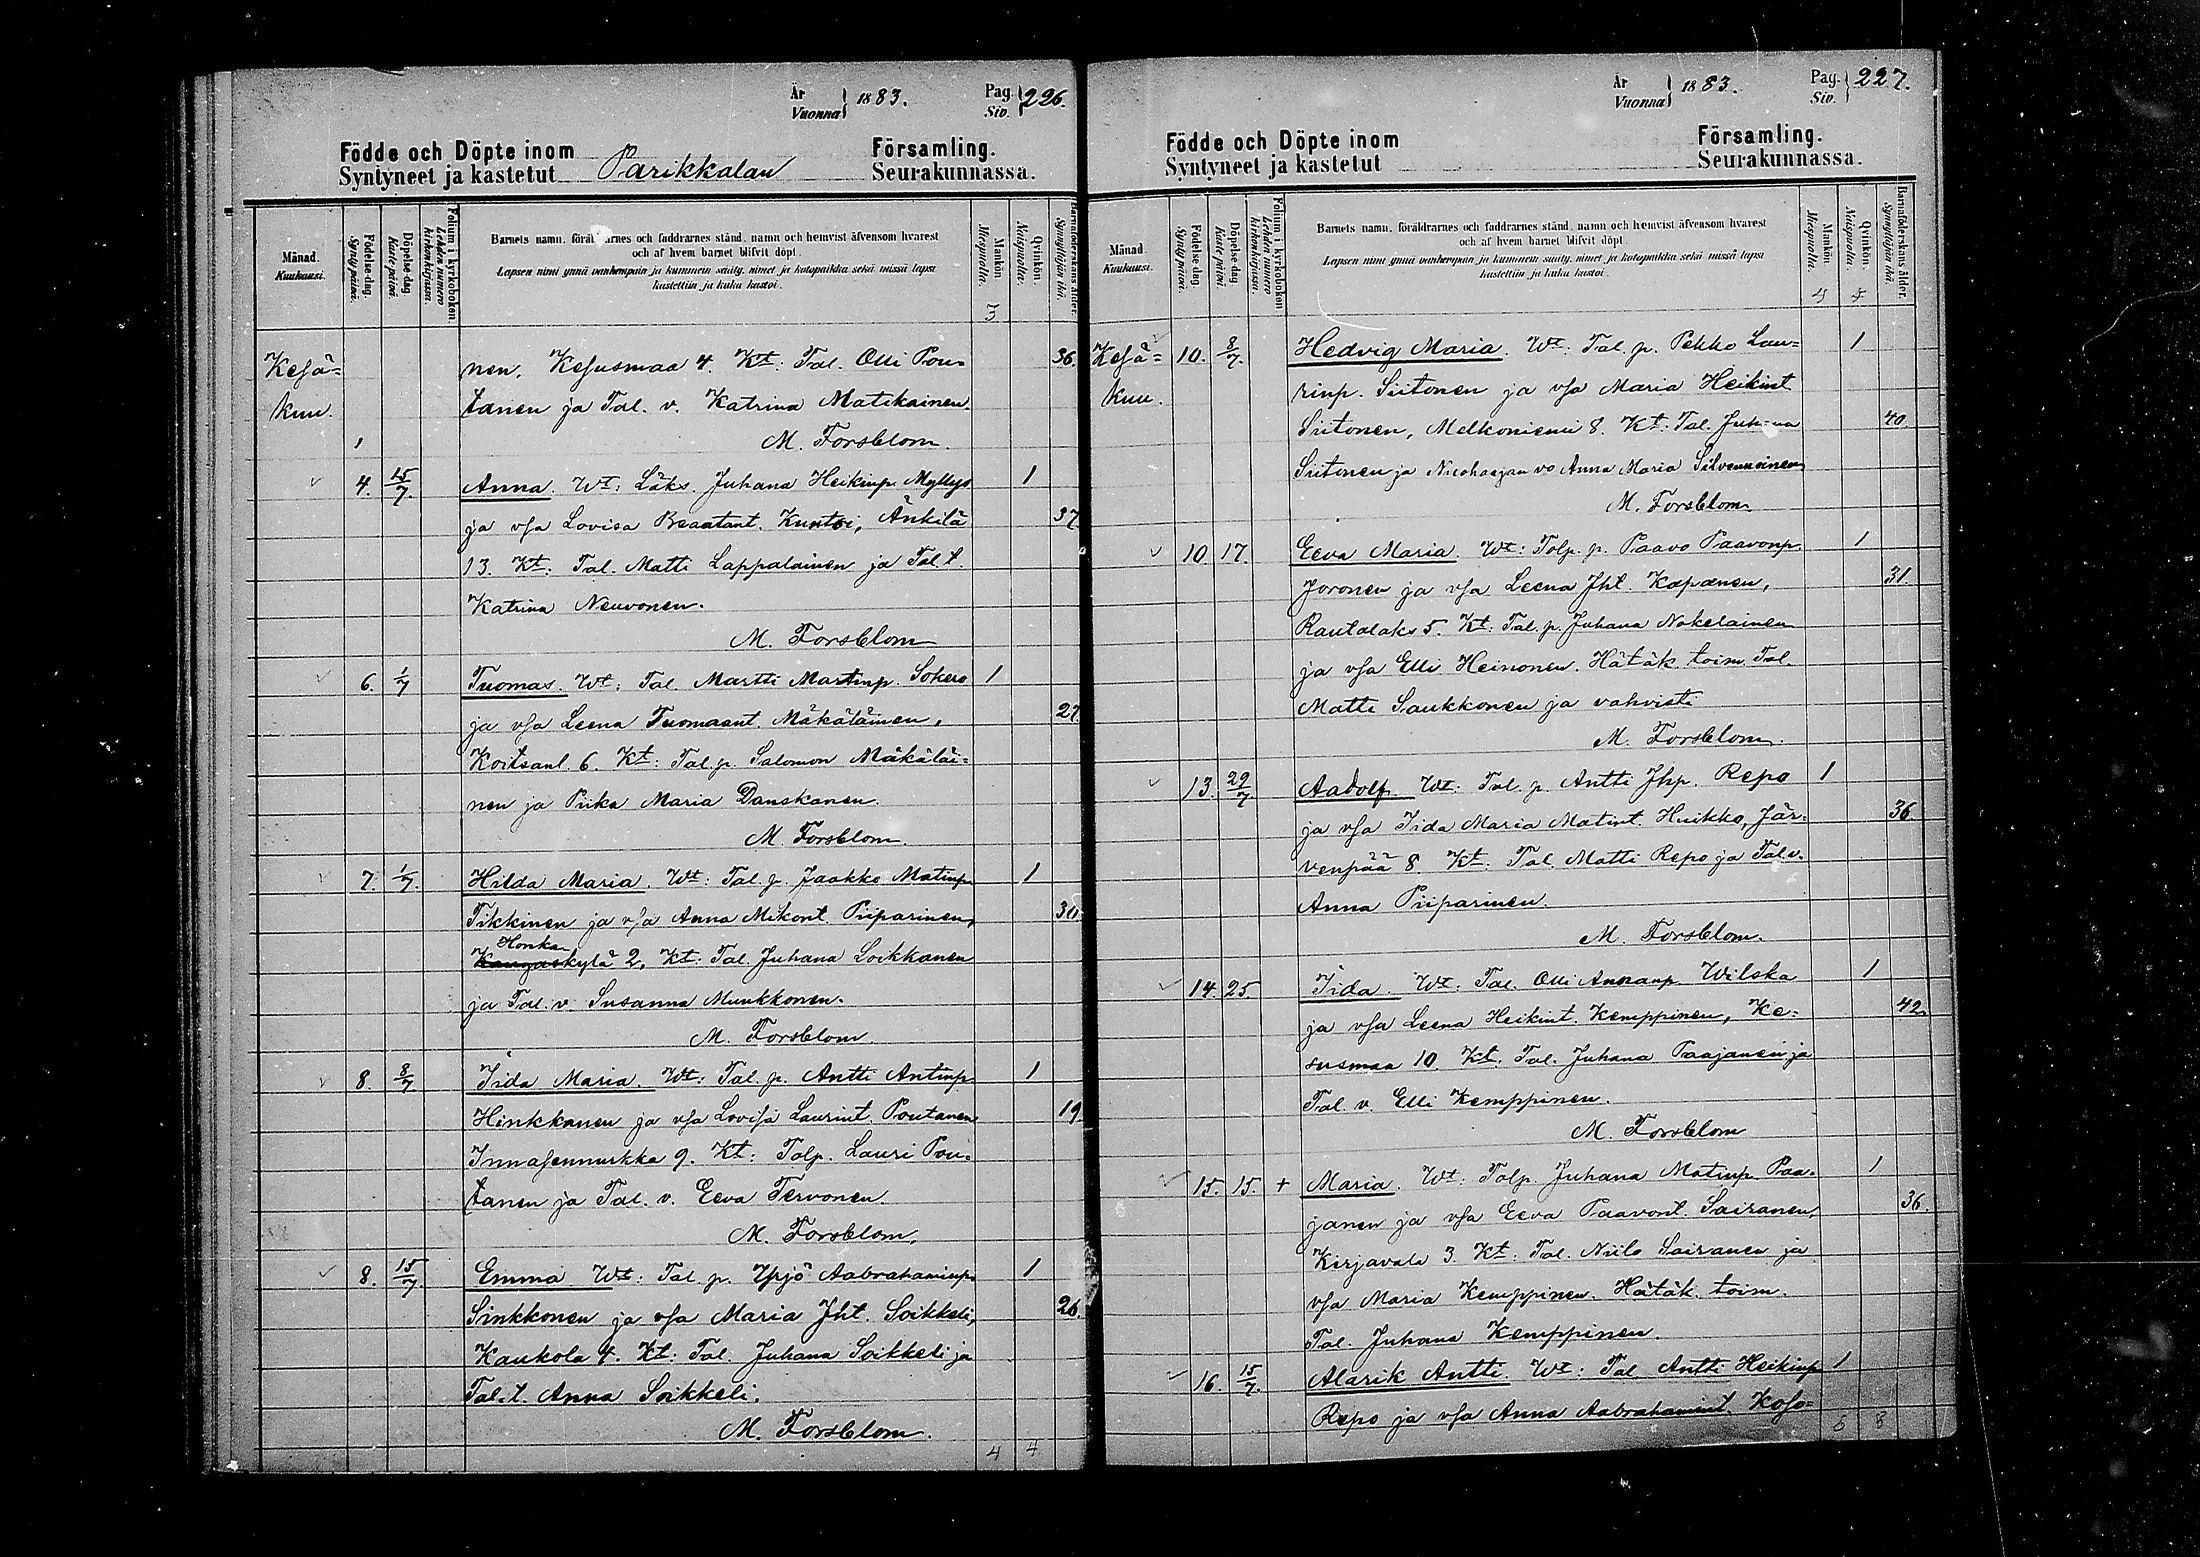 År Vuonna 1883. Pag. Siv. 226.
Födde och Döpte inom Församling.
Syntyneet ja kastetut Parikkalan Seurakunnassa.
Månad. Kuukausi.
Födelse-dag. Syntypäivä.
Döpelse-dag Kaste-päivä.
Folium i kyrkoboken Lehden numero kirkonkirjassa.
Barnets namn, föräldrarnes och faddrarnes stånd, namn och hemvist äfvensom hvarest
och af hvem barnet blifvit döpt.
Lapsen nimi ynnä vanhempain ja kummein sääty, nimet ja kotopaikka sekä missä lapsi
kastettiin ja kuka kastoi.
Mankön Miespuolta.
Qvinkön. Naispuolta.
Barnaföderskans ålder. Synnyttäjän ikä.
3
Kesä= nen, Kesusmaa 4. Kt: Tal. Olli Pou= 36.
kuu. tanen ja Tal. v. Katrina Matikainen.
1 M. Forsblom.
4. 15/7. Anna. Wt: Läks. Juhana Heikinp. Myllys 1
ja vsa Lovisa Beaatant. Kuntsi, Änkilä 37
13. Kt: Tal. Matti Lappalainen ja Tal. t.
Katrina Neuvonen.
M. Forsblom
6. 1/7 Tuomas. Wt: Tal. Martti Martinp. Sokero 1
ja vsa Leena Tuomaant. Mäkäläinen, 27.
Koitsanl. 6. Kt: Tal. p. Salomon Mäkäläi=
nen ja Piika Maria Danskanen.
M. Forsblom.
7. 1/7. Hilda Maria. Wt: Tal. p. Jaakko Matinp. 1
Tikkinen ja vsa Anna Mikont. Piiparinen, 30.
Honka
Kangaskylä 2. Kt: Tal. Juhana Loikkanen
ja Tal. v. Susanna Munkkonen.
M. Forsblom.
8. 8/7 Iida Maria. Wt: Tal. p. Antti Antinp. 1
Hinkkanen ja vsa Lovisa Laurint. Poutanen 19.
Innasennurkka 9. Kt: Talp. Lauri Pou=
tanen ja Tal. v. Eeva Tervonen.
M. Forsblom.
8. 15/7. Emma Wt: Tal. p. Yrjö Aabrahaminp. 1
Sinkkonen ja vsa Maria Jht. Soikkeli, 26.
Kaukola 4. Kt: Tal. Juhana Soikkeli ja
Tal. t. Anna Soikkeli.
M. Forsblom.
4 4
År Vuonna 1883. Pag. Siv. 227.
Födde och Döpte inom Församling.
Syntyneet ja kastetut Seurakunnassa.
Månad. Kuukausi.
Födelse-dag. Syntypäivä.
Döpelse-dag Kaste-päivä.
Folium i kyrkoboken Lehden numero kirkonkirjassa.
Barnets namn, föräldrarnes och faddrarnes stånd, namn och hemvist äfvensom hvarest
och af hvem barnet blifvit döpt.
Lapsen nimi ynnä vanhempain ja kummein sääty, nimet ja kotopaikka sekä missä lapsi
kastettiin ja kuka kastoi.
Mankön Miespuolta.
Qvinkön. Naispuolta.
Barnaföderskans ålder. Synnyttäjän ikä.
4
Kesä= 10. 8/7. Hedvig Maria. Wt: Tal. p. Pekko Lau= 1
kuu. rinp. Siitonen ja vsa Maria Heikint
Siitonen, Melkoniemi 8. Kt: Tal. Juhana 40.
Siitonen ja vo Anna Maria Silvennoinen
M. Forsblom.
10. 17. Eeva Maria. Wt: Talp. p. Paavo Paavonp. 1
Joronen ja vsa Leena Jht. Kapanen, 31.
Rautalaks 5. Kt: Tal. p. Juhana Nokelainen
ja vsa Elli Heinonen. Hätäk. toim. Tal.
Matti Saukkonen ja vahvisti
M. Forsblom.
13. 29/7 Aadolf. Wt: Tal. p. Antti Jhp. Repo 1
ja vsa Iida Maria Matint. Huikko, Jär= 36
venpää 8. Kt: Tal. Matti Repo ja Tal. v.
Anna Piiparinen.
M. Forsblom.
14. 25. Iida. Wt: Tal. Olli Wilska 1
ja vsa Leena Heikint. Kemppinen, Ke= 42.
susmaa 10 Kt: Tal. Juhana Paajanen ja
Tal. v. Elli Kemppinen.
M. Forsblom
15. 15. + Maria. Wt: Talp. Juhana Matinp. Paa= 1
janen ja vsa Eeva Paavont. Sairanen, 36.
Kirjavala 3. Kt: Tal. Niilo Sairanen ja
vsa Maria Kemppinen. Hätäk. toim.
Tal. Juhana Kemppinen.
16. 15/7. Alarik Antti. Wt: Tal. Antti Heikinp 1
Repo ja vsa Anna Aabrahamint. Koso=